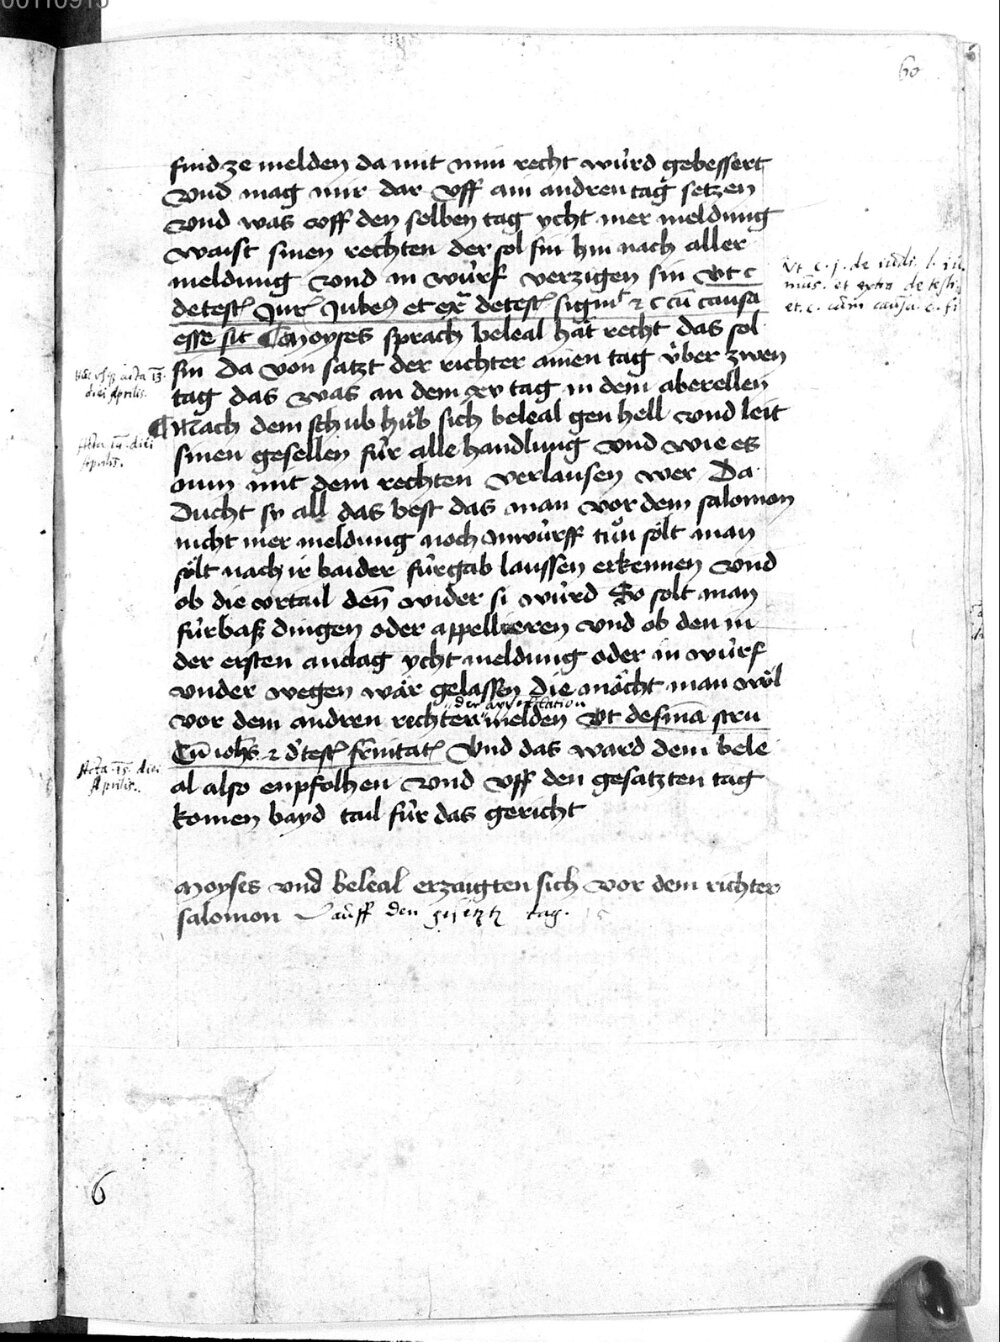 00110915
60
find ze melden da mit min recht wúrd gebessert
Vnd mag mir dar vff ain andren tag setzen
Vnd was voff den selben tag ycht mer meldung
waist sinen rechten der sol sin hin nach aller
meldung vnd in wúrf verzigen sin Vt c
detestꝭ Jurꝭ Jubeꝯ et exͣ detestꝭ signiͨ & c cū causa
esse sit ¶ Moyses sprach beleal hät recht das sol
sin Da von satzt der richter ainen tag v̇ber zwen
tag das was an dem xv tag in dem aberellen
¶ Nach dem schub hůb sich beleal gen hell vnd leit
sinen gesellen fúr alle handlung vnd wie es
nun mit dem rechten verlausen wer Da
Ducht sy all das best das man vor dem salomon
nicht mer meldung noch Inwúrff tůn sölt man
sölt nach ir baider fúrgab laussen erkennen vnd
ob die vrtail den̄ wider si wúrd So solt man
fúrbaß dingen oder appellieren vnd ob den in
der ersten andag ycht meldung oder in wúrf
vnder wegen wär gelassen die möcht man wöl
der appellation
vor dem andren richter melden Vt
Vnd das ward dem bele
al also enpfolhen vnd vff den gesatzten tag
komen bayd tail fúr das gericht
Moyses vnd beleal erzaigten sich vor dem richter
salomon auff den gesetztꝫ tag. 15
Vt c. j. de
et extra de testi
et. c. cum causa
acta 13.
diei Aprilis.
Acta 14 diei
Aprilis.
Acta 15 diei
Aprilis.
6